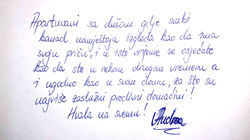 Apartmani sa dušom gdje svaki
komad namještaja izgleda kao da ima
svoju priču, i u isto vrijeme se osjećate
kao da ste u nekom drugom vremenu a
i ugodno kao u svom domu, za što su
najviše zaslužni predivni domaćini!
Hvala na svemu!